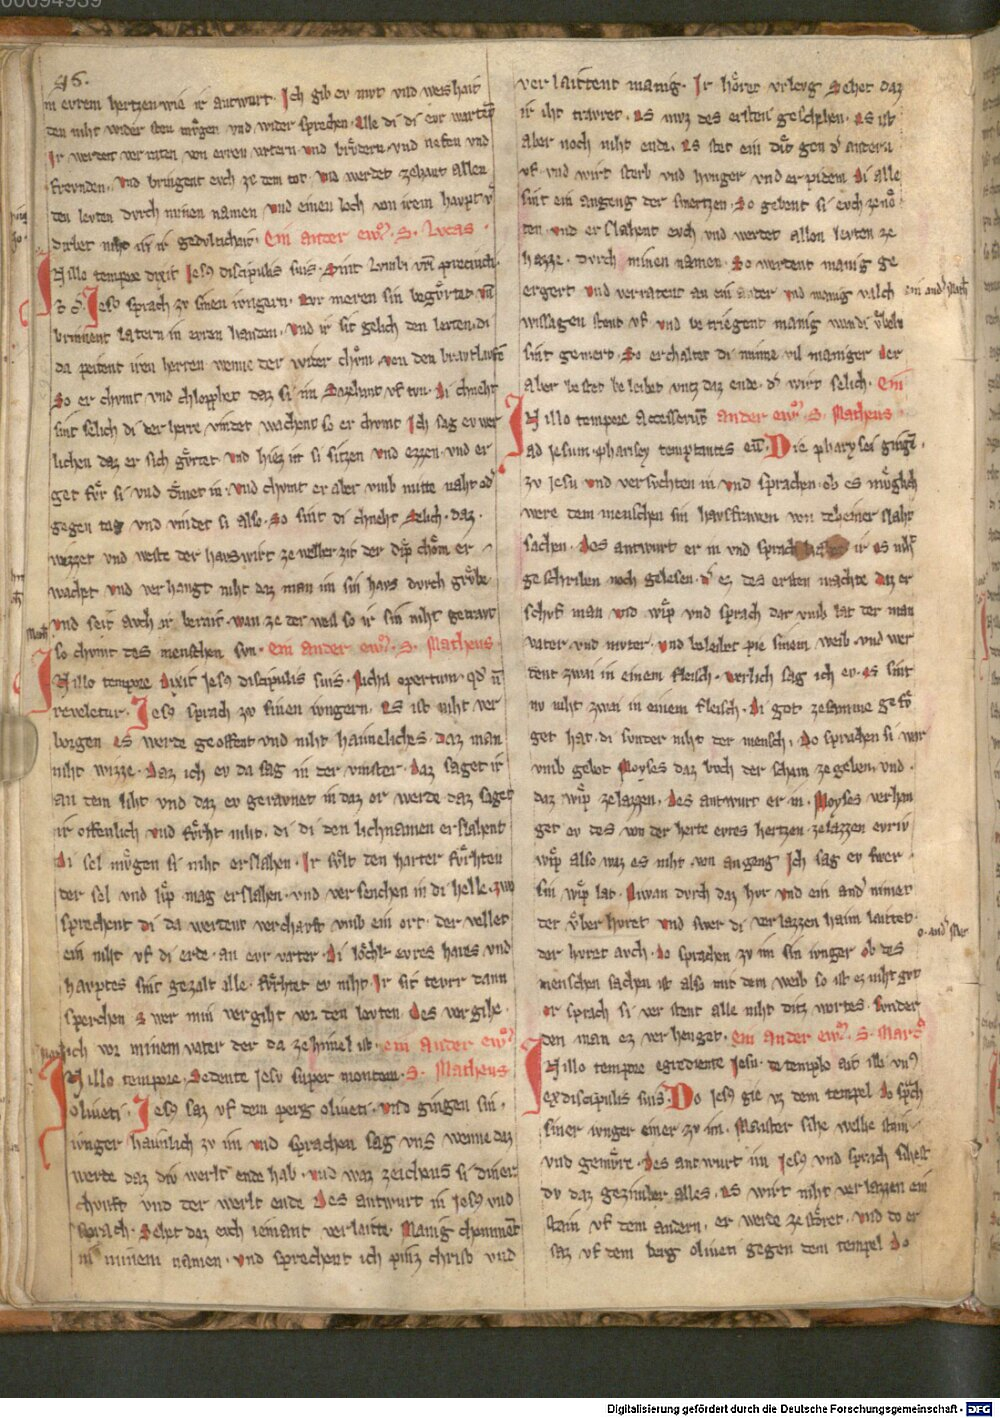 46.
in evrem hertzen wie ir antwurt. Ich gib ev mvt vnd weishait
den niht wider sten mvgen vnd wider sprechen. alle di di evr warten
Ir werdent verraten von evren vatern vnd brvdern. vnd nefen vnd
frevnden. Vnd bringent evch ze dem tot. vnd werdet zehazze allen
den levten dvrch minen namen vnd einen loch von irem havpt v
dirbet niht in ir gedvltichait. Ein ander ewg. S. Lucas.
In illo tempore dixit Iesus discipulis suis. Sint lumbi vri precincti.
Iesus sprach zv sinen ivngern. Evr meren sin begvrtet vn
brinnent latern in evren handen. Vnd ir sit gelich den levten. di
da peitent iren herren wenne der wider chom von den bravtlavft
So er chvmt vnd chlopphet daz si im Sazehant vf tvn. Di chneht
sint selich di der herre vindet wachent so er chvmt Ich sag ev wer
lichen daz er sich gvrtet vnd hiez in si sitzen vnd ezzen. vnd er
get fvr si vnd dinet in. Vnd chvmt er aber vmb mitte naht od
gegen tag vnd vindet si also. So sint di chneht Selich. daz.
wizzet vnd weste der havswirt ze welher zit der dip chom er
wachet vnd verhangt niht daz man im sin havs dvrch grvbe
vnd seit avch ir berait. wan ze der weil so ir sin niht getravt
so chvmt des menschen svn. ein ander ewg. S. Matheus
In illo tempore dixit Iesus discipulis suis. Nichil opertum. qd n
reveletur. Iesus sprach zv sinen ivngern. Es ist niht ver
borgen es werde geoffent vnd niht haimeliches. daz man
niht wizze. Daz ich ev da sag in der vinster. daz saget ir
an dem liht vnd daz ev geravnet in daz or werde daz saget
ir offenlich vnd fvrht niht. di di den lichnamen erslahent
di sel mvgen si niht erslahen. Ir svlt den harter fvrhten
der sel vnd lip mag erslahen. vnd versenchen in di helle. zwo
sprechent di da werdent verchavft vmb ein ort. der vellet
ein niht vf di erde. an evr vater. Di lochk evres haves vnd
havptes sint gezalt alle. fvrhtet ev niht. Ir sit tevrr dann
sperchen Swer min vergiht vor den levten. des vergihe
ich vor minem vater der da ze himel ist. ein ander ewg
In illo tempore. Sedente Iesu super montem. S. Matheus
oliveti. Iesus saz vf dem perg oliveti. vnd gingen sin.
ivnger havnlich zv im vnd sprachen sag vns wenne daz
werde daz div werlt ende hab. vnd waz zeichens si diner
chvnft vnd der werlt ende Des antwurt in Iesus vnd
sprach. Sehet daz evch ieimant verlaitte. Manig choment
in minem namen. vnd sprechent ich pinz christ vnd
verlaittent manig. Ir horet vrlevg Sehet daz
ir iht travret. es mvz des ersten geschehen. es ist
aber noch niht ende. es stet ein dit gen d andern
vf. vnd wirt sterb vnd hvnger vnd erpidem di alle
sint ein angeng der smertzen. So gebent si evch ze no
ten. vnd erslahent evch vnd werdet allen levten ze
hazze. dvrch minen namen. So werdent manig ge
ergert vnd verratent an ein ander vnd manig valch
wissagen stent vf vnd betriegent manig wan di vbels
sint gemert. So erchaltet di minne vil maniger der
aber bestet beleibet vntz daz ende. d wirt selich. Ein
In illo tempore accesserunt ander ewg. S. Matheus.
ad Iesum. pharisey temptantes eum. Die pharysei ginge.
zv Iesu vnd versvchten in vnd sprachen. ob es mvglich
were dem menschen sin havsfrawen von deheiner slaht
sachen. des antwurt er in vnd sprach habet ir es niht
geschriben noch gelesen. d ez des ersten machte daz er
schvf man vnd wip vnd sprach dar vmb lat der man
vater vnd mvter. vnd beleibet pie sinem weib. vnd wer
dent zwai in einem fleisch. werlich sag ich ev. es sint
nv niht zwai in einem fleisch. Di got zesamme gefv
get hat. di svnder niht der mensch. Do sprachen si war
vmb gebot Moyses daz bvch der scham ze geben. vnd.
daz wip zelazzen. Des antwurt er in. Moyses verhan
get ev des von der herte evres hertzen. zelazzen evriv
wip also waz es niht von angeng Ich sag ev swer.
sin wip lat. Niwan dvrch daz hvr vnd ein and nimet
der vber hvret vnd swer di verlazzen haim laittet.
der hvret avch. Do sprachen zv im sin ivnger Ob des
menschen sachen ist also mit dem weib so ist ez niht gvt
er sprach si verstent alle niht ditz wortes. Svnder
den man ez verhenget. ein ander ewg. S. Marc
In illo tempore egrediente Iesu. de templo ait illi vnus
ex discipulis suis. Do Iesus gie vz dem tempel do sprch
siner ivnger einer zv im. Maister sihe welhe stain
vnd gemvre. des antwurt im Iesus vnd sprach sihest
dv daz gezimber alles. es wirt niht verlazzen ein
stain vf dem andern. er werde ze storet. vnd do er
saz vf dem berg oliveti gegen dem tempel do
Digitalisierung gefördert durch die Deutsche Forschungsgemeinschaft - DFG